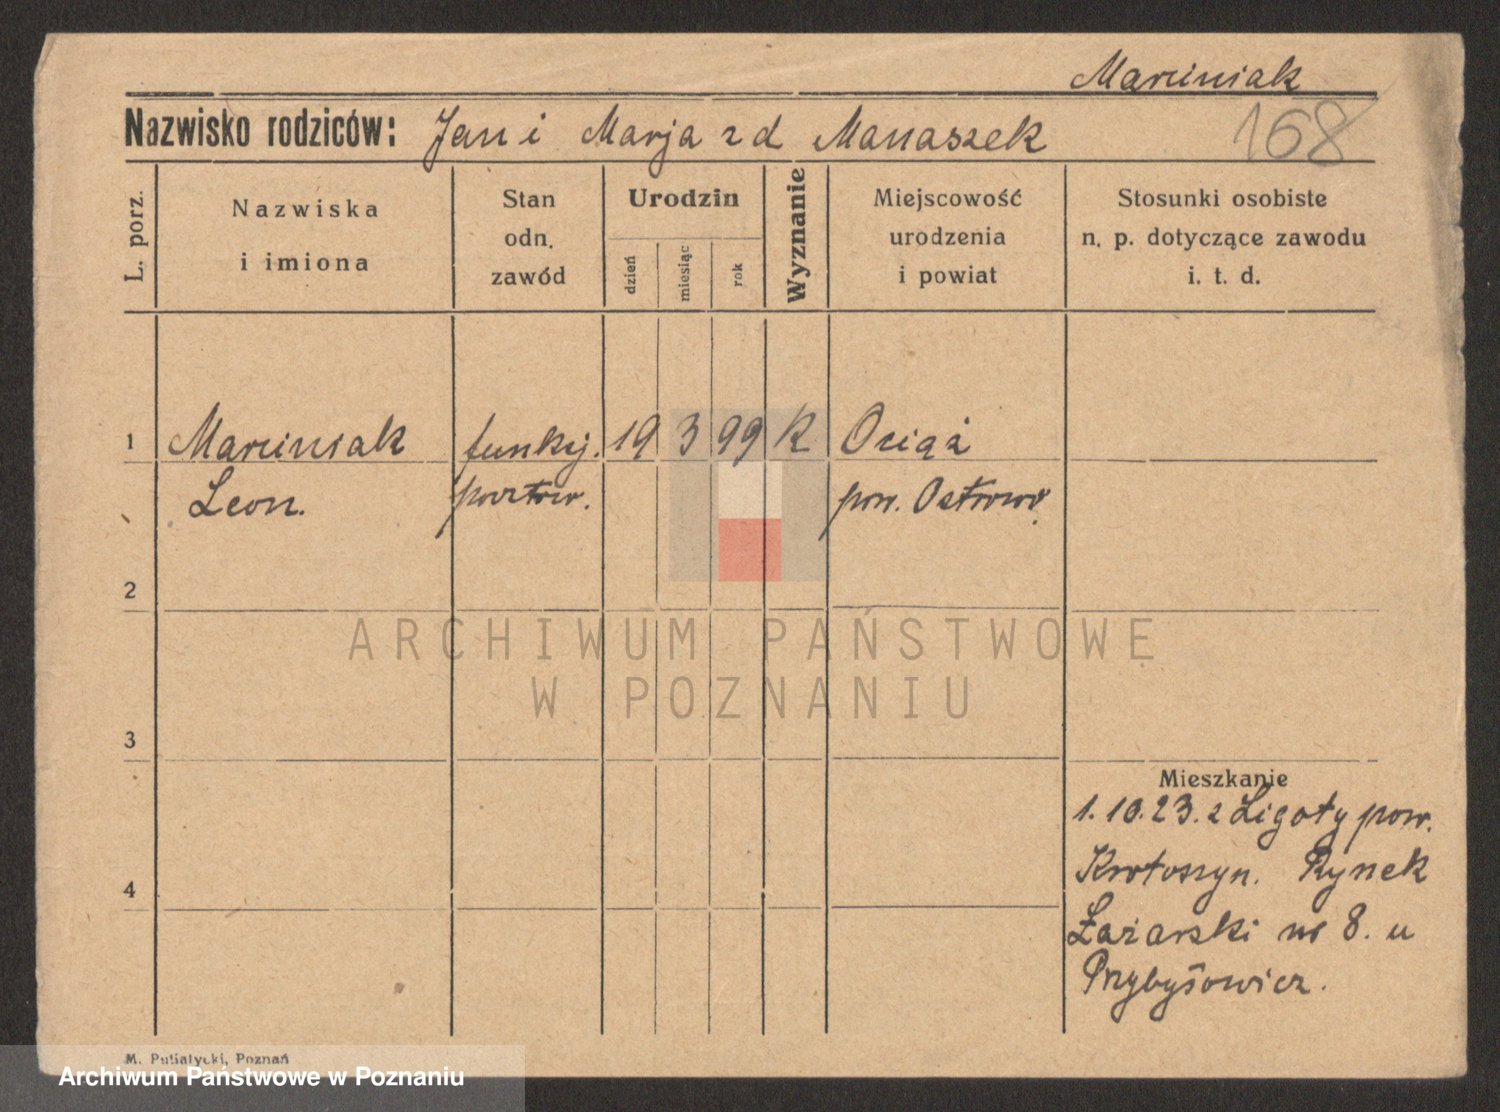 Marciniak
Nazwisko rodziców: Jan i Marja z d Manaszek
168
L. porz.
Nazwiska
i imiona
Stan
odn.
zawód
Urodzin
dzień
miesiąc
rok
Wyznanie
Miejscowość
urodzenia
i powiat
Stosunki osobiste
n. p. dotyczące zawodu
i. t. d.
1 Marciniak funkcj. 19 3 99 K Ociąż
Leon. pocztow. pow. Ostrowo.
2
3
4
Mieszkanie
1.10.23. z Ligoty pow.
Krotoszyn. Rynek
Łazarski nr 8. u
Przybysowicz.
ARCHIWUM PAŃSTWOWE
W POZNANIU
M. Putiatycki, Poznań
Archiwum Państwowe w Poznaniu